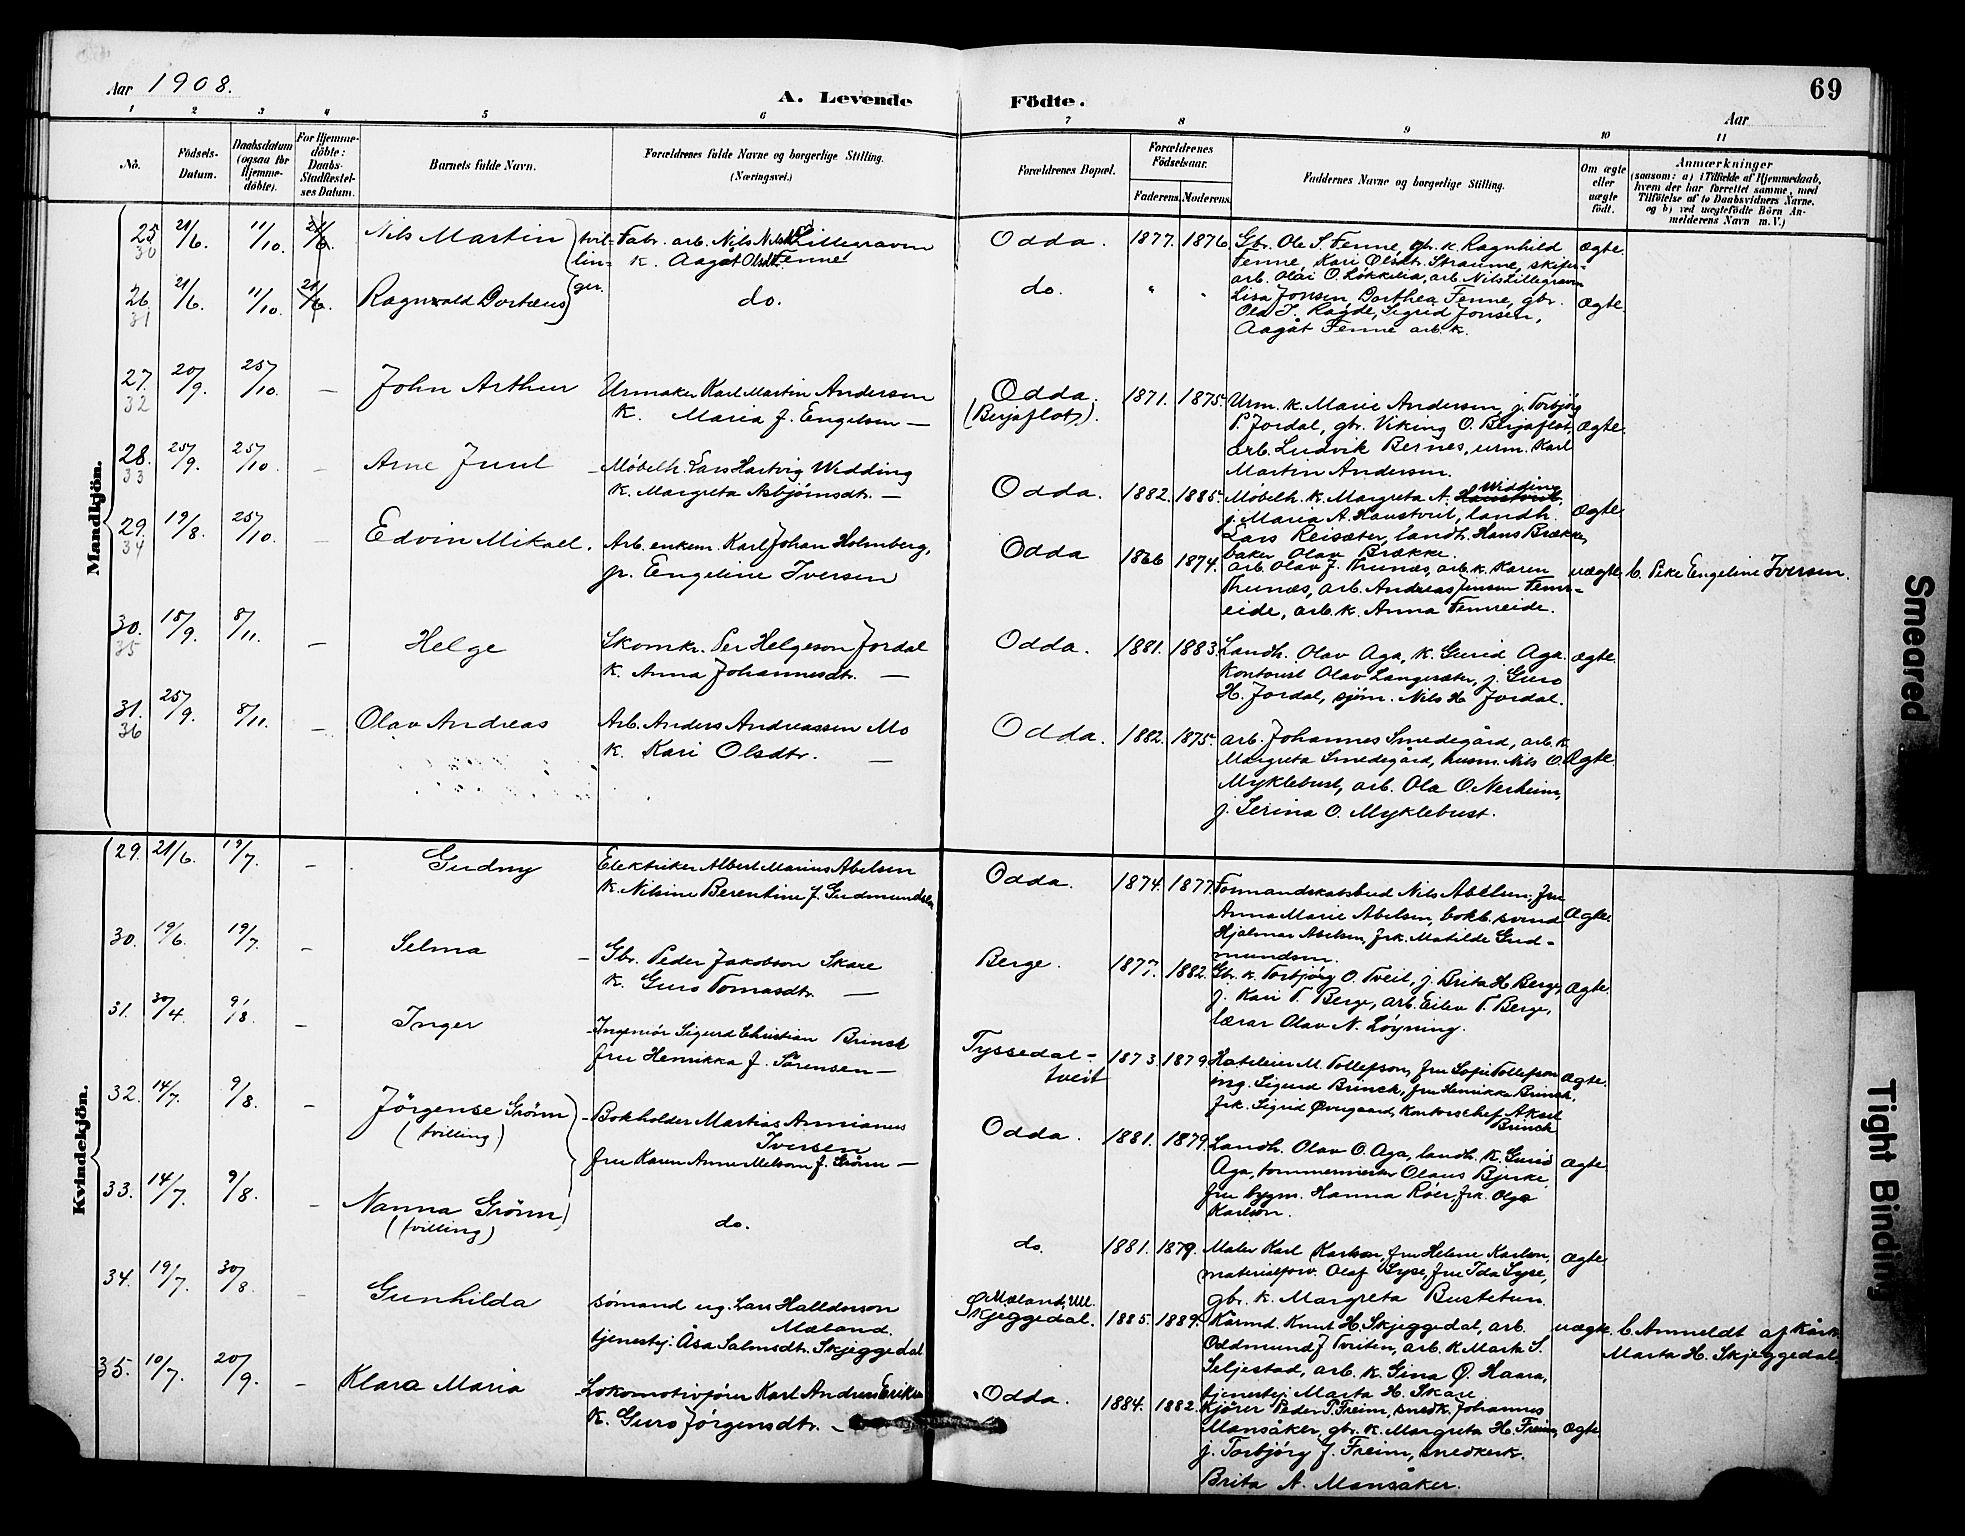 Aar 1908.
A. Levende Födte.
69
Aar
1 2 3 4 5 6 7 8 9 10 11
No.
Födsels-Datum.
Daabsdatum (ogsaa for Hjemme-döbte).
For Hjemme-döbte: Daabs-Stadfæstel-ses Datum.
Barnets fulde Navn.
Forældrenes fulde Navne og borgerlige Stilling. (Næringsvei.)
Forældrenes Bopæl.
Forældrenes Födselsaar.
Faderens. Moderens.
Faddernes Navne og borgerlige Stilling.
Om ægte eller uægte födt.
Anmærkninger
(saasom: a) i Tilfælde af Hjemmedaab,
hvem der har forrettet samme, med
Tilföielse af to Daabsvidners Navne.
og b) ved uægtefödte Börn An-
melderens Navn m. V.)
Mandkjön.
25 30 21/6. 11/10. 21/6. Nils Martin tvil- Fabr. arb. Nils Nilss. Lillegraven Odda. 1877. 1876. Gbr. Ole S. Fenne, gbr. k. Ragnhild ægte.
lin- k. Aagåt Olsdt. Fenne Fenne, Kari Olsdtr. Straume, skifer-
ger. arb. Olai O. Løkkelia, arb. Nils Lillegraven
26. 31 21/6. 11/10. 21/6. Ragnvald Dortæus do. do. " " Lisa Jonsen, Dorthea Fenne, gbr. ægte.
Ola J. Ragde, Sigrid Jonsen,
Aagåt Fenne arb. k.
27. 32 20/9. 25/10. – John Arthur Urmaker Karl Martin Andersen Odda. 1871. 1875. Urm. k. Marie Andersen, j. Torbjørg
K. Maria f. Engelsen — (Berjaflot). P. Jordal, gbr. Viking O. Berjaflot, ægte.
arb. Ludvik Bernes, urm. Karl
Martin Andersen.
28. 33 25/9. 25/10. – Arne Juul Møbelh. Lars Hartvig Widding Odda. 1882. 1885. Møbelh. k. Margreta A. Widding ægte.
K. Margreta Asbjørnsdtr. — j. Maria A. Haustveit, landh.
Lars Reisæter, landh. Hans Brække,
baker Olav Brække.
29. 34 19/8. 25/10. – Edvin Mikael. Arb. enkem. Karl Johan Holmberg, Odda 1866 1874. arb. Olav J. Thunes, arb. k. Karen uægte b. Pike Engeline Iversen.
p. Engeline Iversen Thunes, arb. Andreas Jensen Femr-
eide, arb. k. Anna Femreide.
30. 35 18/9. 8/11. – Helge Skomkr. Per Helgeson Jordal Odda. 1881. 1883. Landh. Olav Aga, k. Gurid Aga. ægte.
k. Anna Johannesdt. — Kontorist Olav Langesæter, j. Guro
H. Jordal, sjöm. Nils H. Jordal.
31. 36 25/9. 8/11. – Olav Andreas Arb. Anders Andreassen Mo Odda. 1882. 1875. arb. Johannes Smedegård, arb. k.
K. Kari Olsdtr. — Margreta Smedegård, husm. Nils O. Ægte.
Myklebust, arb. Ola O. Nerheim,
j. Serina O. Myklebust.
Kvindekjön.
29. 21/6. 19/7. – Gudny Elektriker Albert Marius Abelsen Odda. 1874. 1877. Formandskabsbud Nils Abelsen, fru
K. Nilsine Berentine f. Gudmundsen Anna Marie Abelsen, bokb.svend Ægte.
Hjalmar Abelsen, frk. Matilde Gud-
mundsen.
30. 19/6. 19/7. – Selma Gbr. Peder Jakobson Skare Berge. 1877. 1882. Gbr. k. Torbjörg O. Tveit, j. Brita H. Berge, Ægte.
K. Guro Tomasdtr. — j. Kari T. Berge, arb. Eilev T. Berge,
lærar Olav N. Løyning.
31. 30/4. 9/8. – Inger Ingeniør Sigurd Christian Brinch Tyssedal- 1873. 1879. Hoteleier M. Tollefson, fru Sofie Tollefson
fru Henrikka f. Sørensen — tveit ing. Sigurd Brinch, fru Henrikka Brinch, Ægte.
frk. Sigrid Øvergaard, kontorschef Aksel
Brinch
32. 14/7. 9/8. – Jörgense Grönn Bokholder Martias Annianus Odda. 1881. 1879. Landh. Olav O. Aga, landh. k. Gurid
(tvilling) Iversen Aga, tømmermann Olaus Bjerke, ægte
fru Karen Anne Melsom f. Grönn — fru bygm. Hanna Röer, frk. Olga
Karlson.
33. 14/7. 9/8. – Nanna Grönn do. do. 1881. 1879. Maler Karl Karlson, fru Helene Karlson, ægte
(tvilling) materialforv. Olaf Syse, fru Ida Syse,
gbr. k. Margreta Bustetun.
34. 19/7. 30/8. – Gunhilda sømand ug. Lars Halldorson Mæland, Ull. 1885. 1889. Kårmd. Knut H. Skjeggedal, arb. uægte b. Anmeldt af Kårk.
Mæland. Skjeggedal. Oddmund J Tveiten, arb. k Marta S. Marta H. Skjeggedal.
tjenestej. Åsa Salmsdt. Skjeggedal Seljestad, arb. k. Gina Ø. Haara,
tjenestej. Marta H. Skare
35. 10/7. 20/9. – Klara Maria Lokomotivfører Karl Andreas Erikson Odda. 1884. 1882. Kjører Peder P. Freim, snedk. Johannes
K. Guro Jörgensdtr. — Mansåker, gbr. k. Margreta H. Freim, Ægte
j. Torbjörg J. Freim, snedkerk.
Brita A. Mansåker.
Smeared
Tight Binding